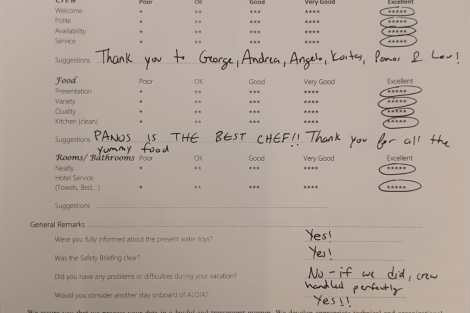 Crew Poor OK Good Very Good Excellent
Welcome * ** *** **** *****
Polite * ** *** **** *****
Availability * ** *** **** *****
Service * ** *** **** *****
Suggestions Thank you to George, Andrea, Angelo, Kostas, Panos & Lou!
Food Poor OK Good Very Good Excellent
Presentation * ** *** **** *****
Variety * ** *** **** *****
Quality * ** *** **** *****
Kitchen (clean) * ** *** **** *****
Suggestions PANOS IS THE BEST CHEF!! Thank you for all the
yummy food
Rooms/ Bathrooms Poor OK Good Very Good Excellent
Neatly * ** *** **** *****
Hotel Service
(Towels, Bed...) * ** *** **** *****
Suggestions
General Remarks
Were you fully informed about the present water toys? Yes!
Was the Safety Briefing clear? Yes!
Did you have any problems or difficulties during your vacation? No - if we did, crew
handled perfectly
Would you consider another stay onboard of ALOIA? Yes!!